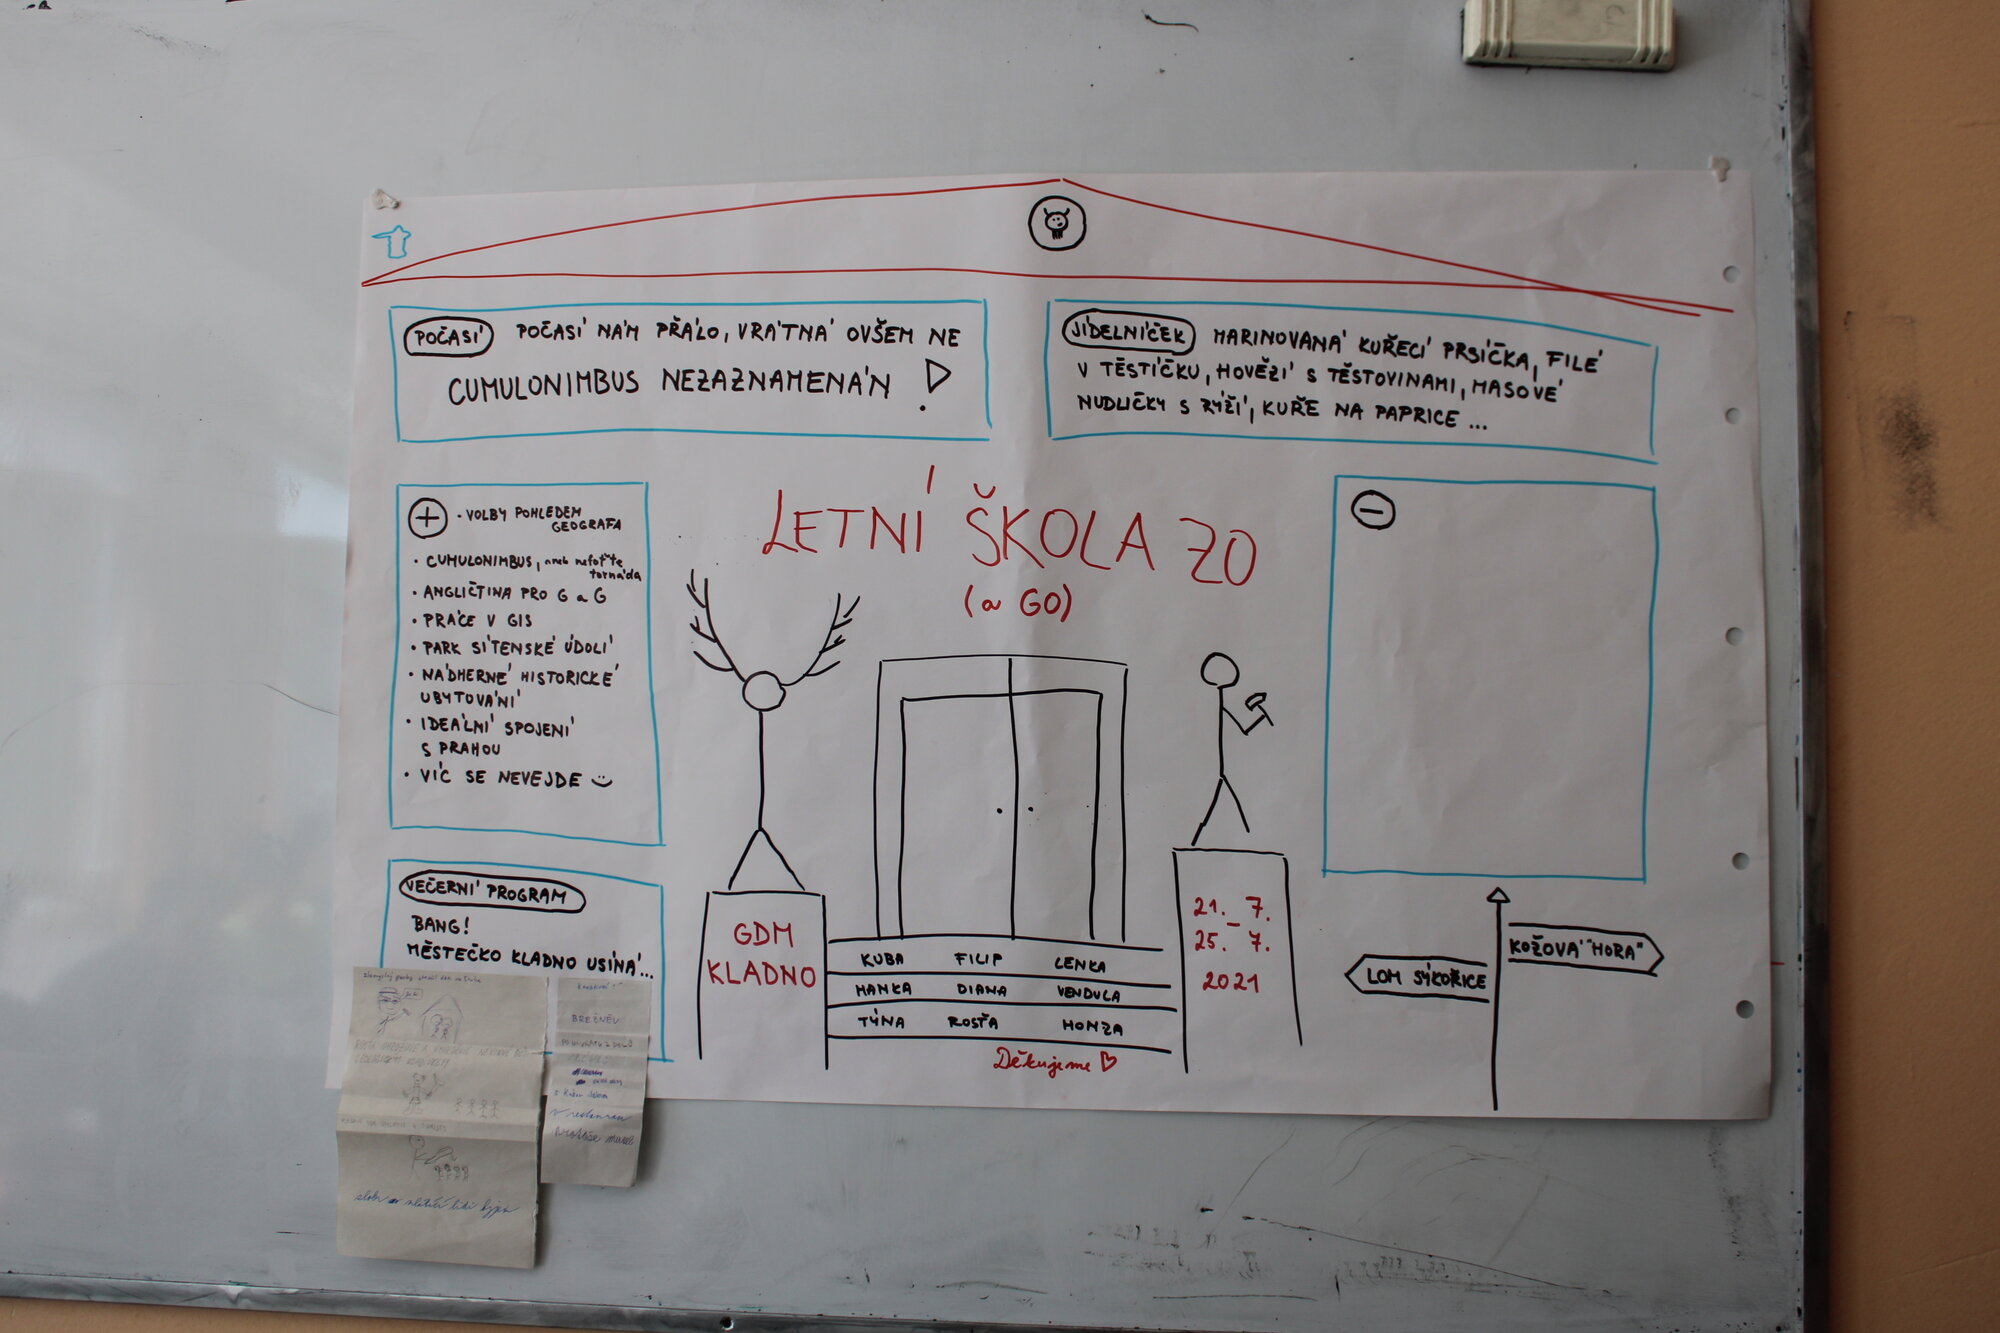 POČASÍ POČASÍ NÁM PŘÁLO, VRÁTNÁ OVŠEM NE
CUMULONIMBUS NEZAZNAMENÁN !
JÍDELNÍČEK MARINOVANÁ KUŘECÍ PRSÍČKA, FILÉ
V TĚSTÍČKU, HOVĚZÍ S TĚSTOVINAMI, MASOVÉ
NUDLIČKY S RÝŽÍ, KUŘE NA PAPRICE ...
LETNÍ ŠKOLA ZO
(a GO)
+ • VOLBY POHLEDEM
GEOGRAFA
• CUMULONIMBUS, aneb nefoťte
tornáda
• ANGLIČTINA PRO G a G
• PRÁCE V GIS
• PARK SÍTENSKÉ ÚDOLÍ
• NÁDHERNÉ HISTORICKÉ
UBYTOVÁNÍ
• IDEÁLNÍ SPOJENÍ
S PRAHOU
• VÍC SE NEVEJDE
−
VEČERNÍ PROGRAM
BANG!
MĚSTEČKO KLADNO USÍNÁ...
GDM
KLADNO
KUBA FILIP LENKA
HANKA DIANA VENDULA
TÝNA ROSŤA HONZA
Děkujeme
21. 7. –
25. 7.
2021
KOŽOVÁ "HORA"
LOM SÝKOŘICE
BREŽNĚV